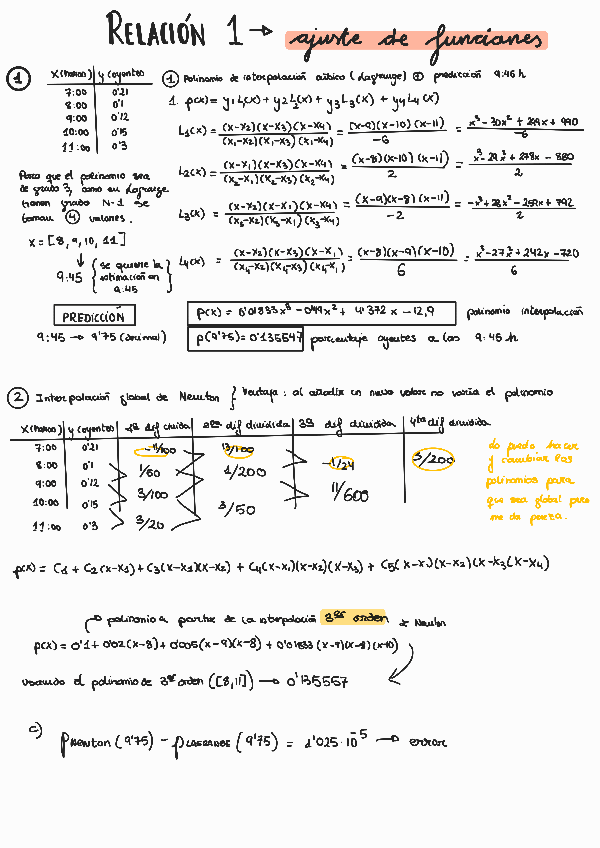 RELACIÓN 1 → ajuste de funciones
1
X(horas) y (oyentes)
7:00 0'21
8:00 0'1
9:00 0'12
10:00 0'15
11:00 0'3
1 Polinomio de interpolación cúbico (Lagrange) predicción 9:45 h
1. p(x) = y1L1(x) + y2L2(x) + y3L3(x) + y4L4(x)
L1(x) = (x-x2)(x-x3)(x-x4) / (x1-x2)(x1-x3)(x1-x4) = (x-9)(x-10)(x-11) / -6 = x³-30x²+299x+990 / -6
L2(x) = (x-x1)(x-x3)(x-x4) / (x2-x1)(x2-x3)(x2-x4) = (x-8)(x-10)(x-11) / 2 = x³-29x²+278x-880 / 2
L3(x) = (x-x2)(x-x1)(x-x4) / (x3-x2)(x3-x1)(x3-x4) = (x-9)(x-8)(x-11) / -2 = -x³+28x²-259x+792 / 2
L4(x) = (x-x2)(x-x3)(x-x1) / (x4-x2)(x4-x3)(x4-x1) = (x-8)(x-9)(x-10) / 6 = x³-27x²+242x-720 / 6
Para que el polinomio sea
de grado 3, como en Lagrange
tienen grado N-1 se
toman 4 valores.
x = [8, 9, 10, 11]
9:45 { se quiere la estimación en 9:45 }
PREDICCIÓN
9:45 → 9'75 (decimal)
p(x) = 0'01833x³ - 0'49x² + 4'372x - 12,9 polinomio interpolación
p(9'75) = 0'135547 porcentaje oyentes a las 9:45 h
2 Interpolación global de Newton } Ventaja: al añadir un nuevo valor no varía el polinomio
X(horas) y (oyentes) 1ª dif dividida 2ª dif dividida 3ª dif dividida 4ta dif dividida
7:00 0'21 -11/100 13/100
8:00 0'1 1/50 1/200 -1/24 3/200
9:00 0'12 3/100 11/600
10:00 0'15 3/50
11:00 0'3 3/20
lo puedo hacer
y cambiar los
polinomios para
que sea global pero
me da pereza.
p(x) = C1 + C2(x-x1) + C3(x-x1)(x-x2) + C4(x-x1)(x-x2)(x-x3) + C5(x-x1)(x-x2)(x-x3)(x-x4)
→ polinomio a partir de la interpolación 3er orden de Newton
p(x) = 0'1 + 0'02(x-8) + 0'005(x-9)(x-8) + 0'01833(x-9)(x-8)(x-10)
usando el polinomio de 3er orden ([8,11]) → 0'135557
c) PNewton (9'75) - PLAGRANGE (9'75) = 1'025·10⁻⁵ → error